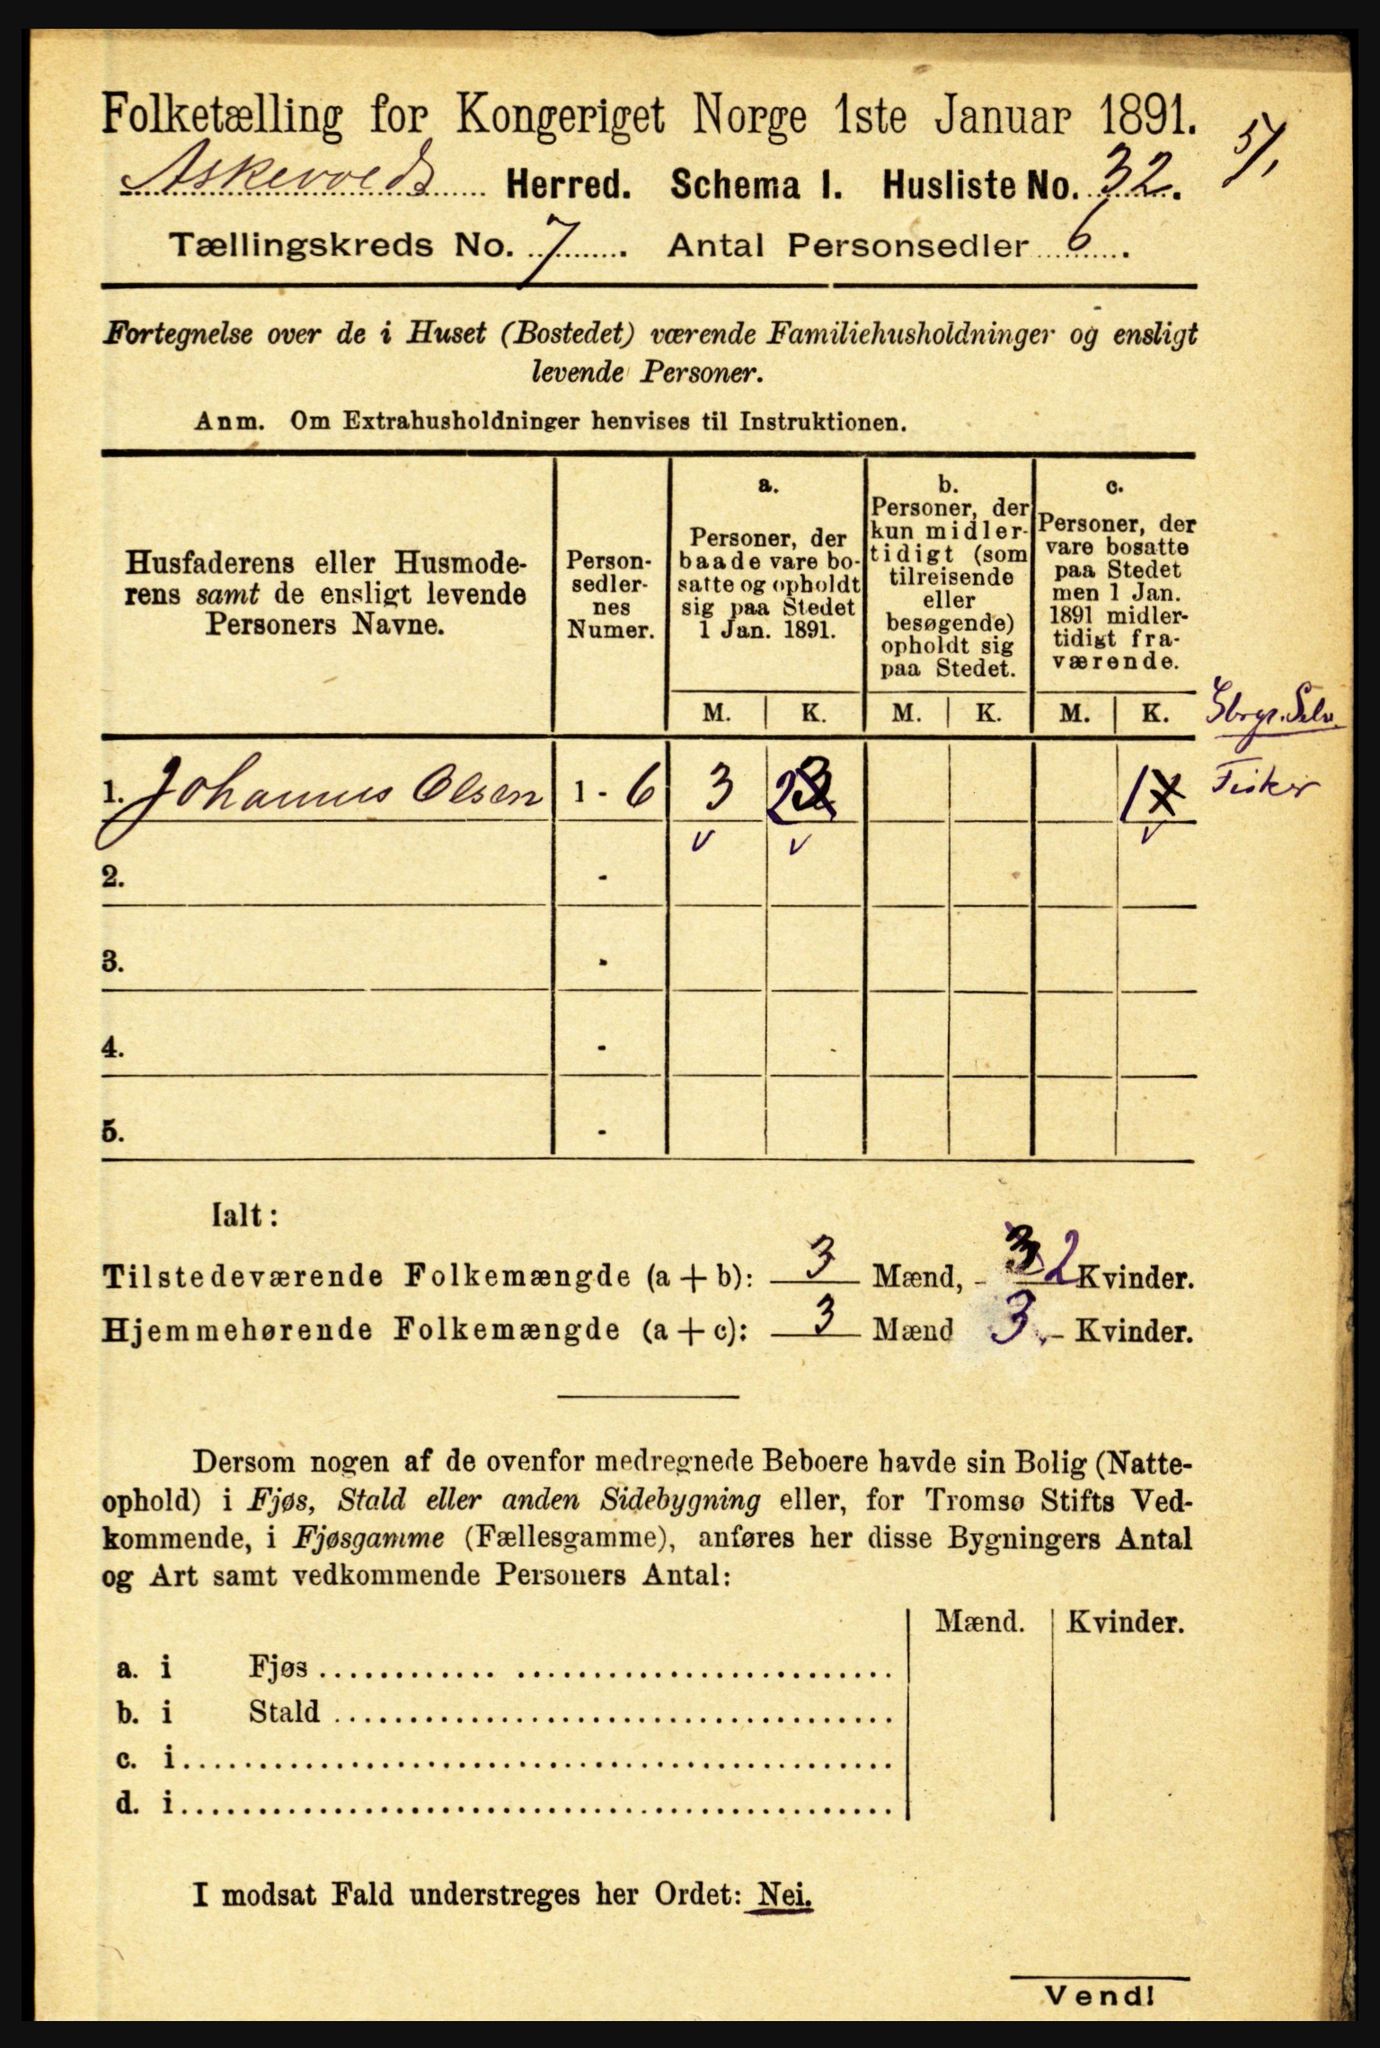 Folketælling for Kongeriget Norge 1ste Januar 1891.
5/1
Askevolds Herred. Schema I. Husliste No. 32.
Tællingskreds No. 7. Antal Personsedler 6.
Fortegnelse over de i Huset (Bostedet) værende Familiehusholdninger og ensligt
levende Personer.
Anm. Om Extrahusholdninger henvises til Instruktionen.
Husfaderens eller Husmode-
rens samt de ensligt levende
Personers Navne.
Person-
sedler-
nes
Numer.
a.
Personer, der
baade vare bo-
satte og opholdt
sig paa Stedet
1 Jan. 1891.
b.
Personer, der
kun midler-
tidigt (som
tilreisende
eller
besøgende)
opholdt sig
paa Stedet.
c.
Personer, der
vare bosatte
paa Stedet
men 1 Jan.
1891 midler-
tidigt fra-
værende.
M. K. M. K. M. K.
1. Johannus Olsen 1 - 6 3 2 1 Fisker
2. -
3. -
4. -
5. -
Ialt:
Tilstedeværende Folkemængde (a + b): 3 Mænd, - 2 Kvinder.
Hjemmehørende Folkemængde (a + c): 3 Mænd 3 - Kvinder.
Dersom nogen af de ovenfor medregnede Beboere havde sin Bolig (Natte-
ophold) i Fjøs, Stald eller anden Sidebygning eller, for Tromsø Stifts Ved-
kommende, i Fjøsgamme (Fællesgamme), anføres her disse Bygningers Antal
og Art samt vedkommende Personers Antal:
Mænd. Kvinder.
a. i Fjøs
b. i Stald
c. i
d. i
I modsat Fald understreges her Ordet: Nei.
Vend!